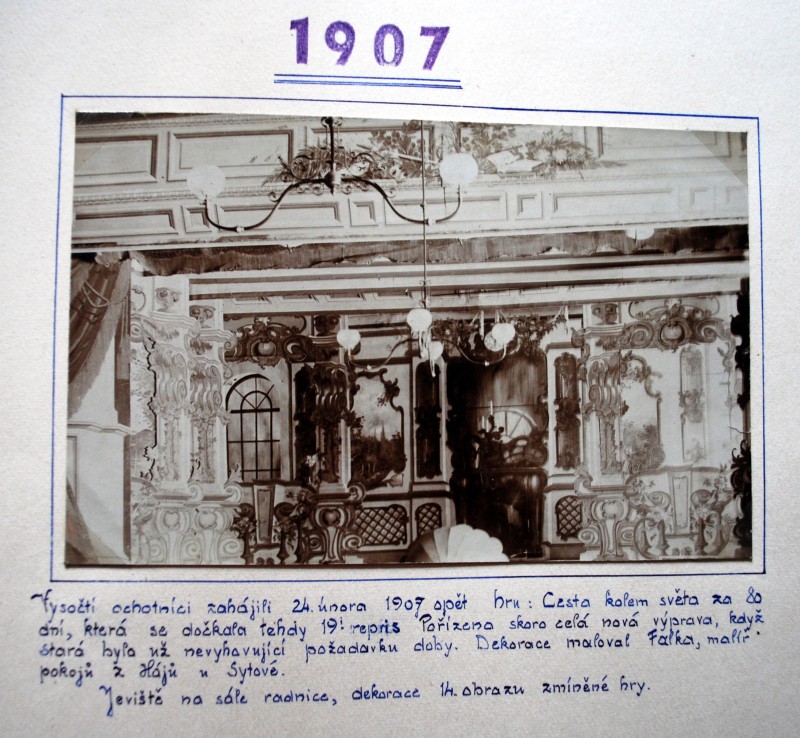 1907
Vysočtí ochotníci zahájili 24. února 1907 opět hru: Cesta kolem světa za 80
dní, která se dočkala tehdy 19ti repris Pořízena skoro celá nová výprava, když
stará byla už nevyhavující požadavku doby. Dekorace maloval Falka, malíř
pokojů z Hájů u Sytové.
Jeviště na sále radnice, dekorace 14. obrazu zmíněné hry.